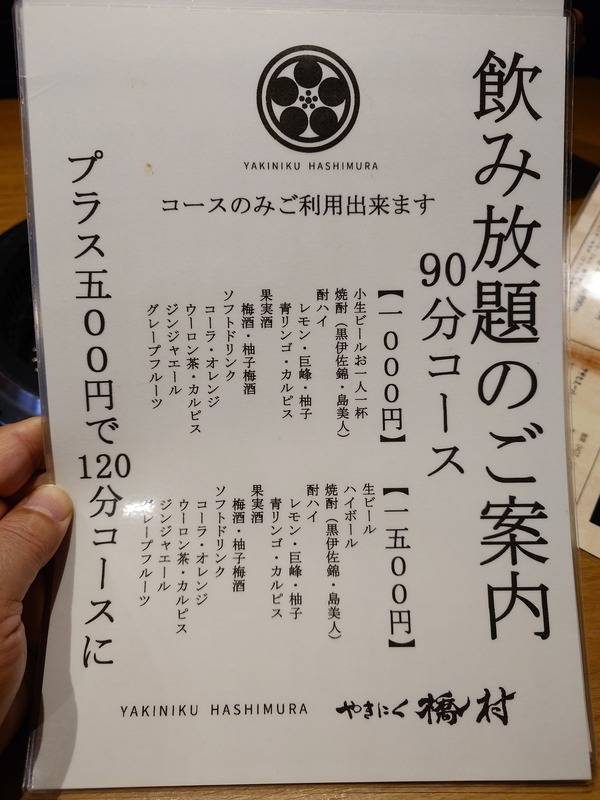 飲み放題のご案内
YAKINIKU HASHIMURA
コースのみご利用出来ます
90分コース
【一〇〇〇円】
小生ビールお一人一杯
焼酎（黒伊佐錦・島美人）
酎ハイ
レモン・巨峰・柚子
青リンゴ・カルピス
果実酒
梅酒・柚子梅酒
ソフトドリンク
コーラ・オレンジ
ウーロン茶・カルピス
ジンジャエール
グレープフルーツ
【一五〇〇円】
生ビール
ハイボール
焼酎（黒伊佐錦・島美人）
酎ハイ
レモン・巨峰・柚子
青リンゴ・カルピス
果実酒
梅酒・柚子梅酒
ソフトドリンク
コーラ・オレンジ
ウーロン茶・カルピス
ジンジャエール
グレープフルーツ
プラス五〇〇円で120分コースに
YAKINIKU HASHIMURA
やきにく 橋村